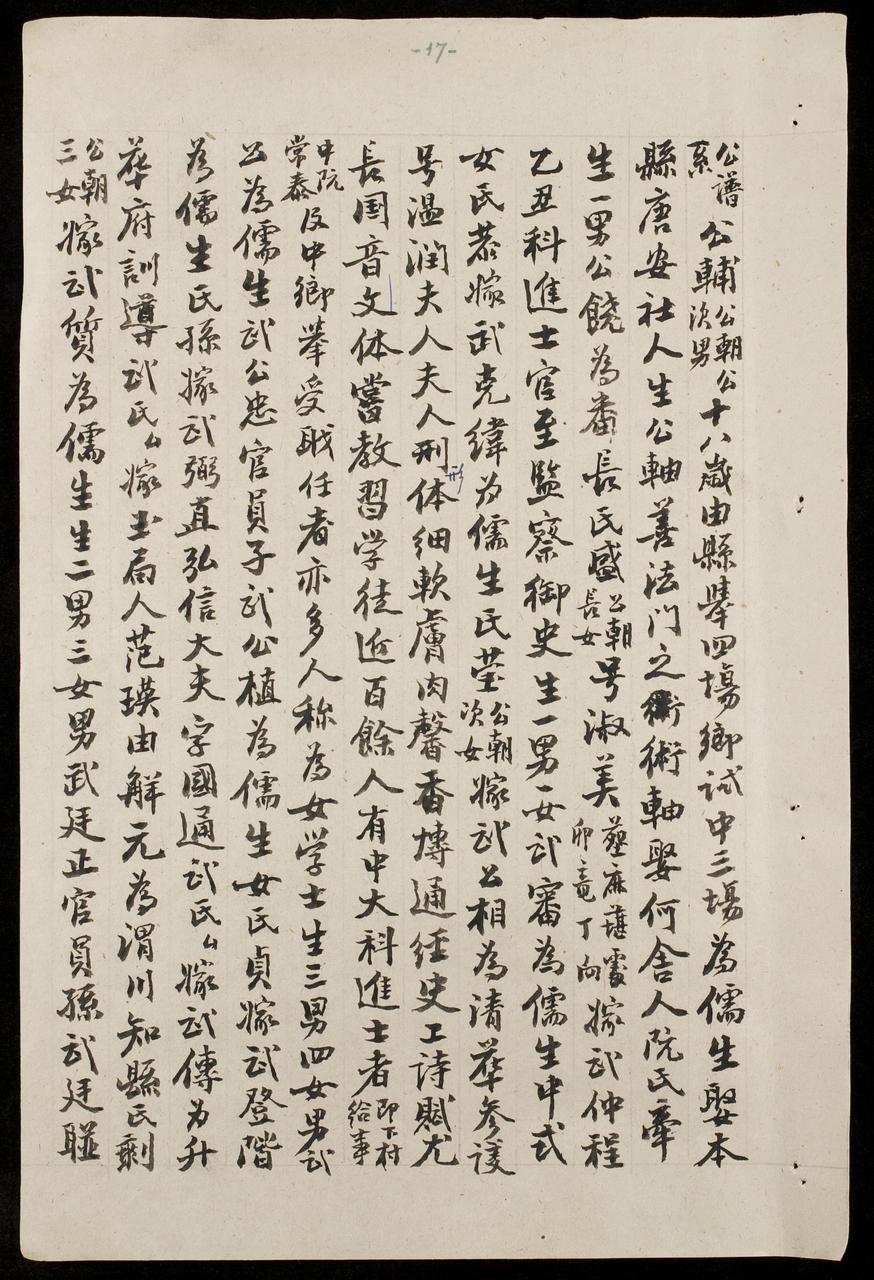 -17-
公譜系公輔公朝公次男十八歲由縣舉四塲鄉試中三塲為儒生娶本
縣唐安社人生公軸善法門之術術軸娶何舍人阮氏牽
生一男公饒為番長氏盛公朝長女号淑美塟麻堪處卯竜丁向嫁武仲程
乙丑科進士官至監察御史生一男一女武審為儒生中式
女氏恭嫁武克緯为儒生氏莹公朝次女嫁武公相為清華参議
号温潤夫人夫人刑形体细軟膚肉馨香博通经史工詩賦尤
長国音文体嘗教習学徒近百餘人有中大科進士者即下村給事
中阮常泰及中鄉舉受戢任者亦多人称為女学士生三男四女男武
公為儒生武公忠官員子武公植為儒生女氏貞嫁武登階
為儒生氏孫嫁武弼直弘信大夫字國通武氏厶嫁武傳为升
華府訓導武氏厶嫁玉局人范瑛由解元為渭川知縣氏剩
公朝三女嫁武質為儒生生二男三女男武廷正官員孫武廷聦